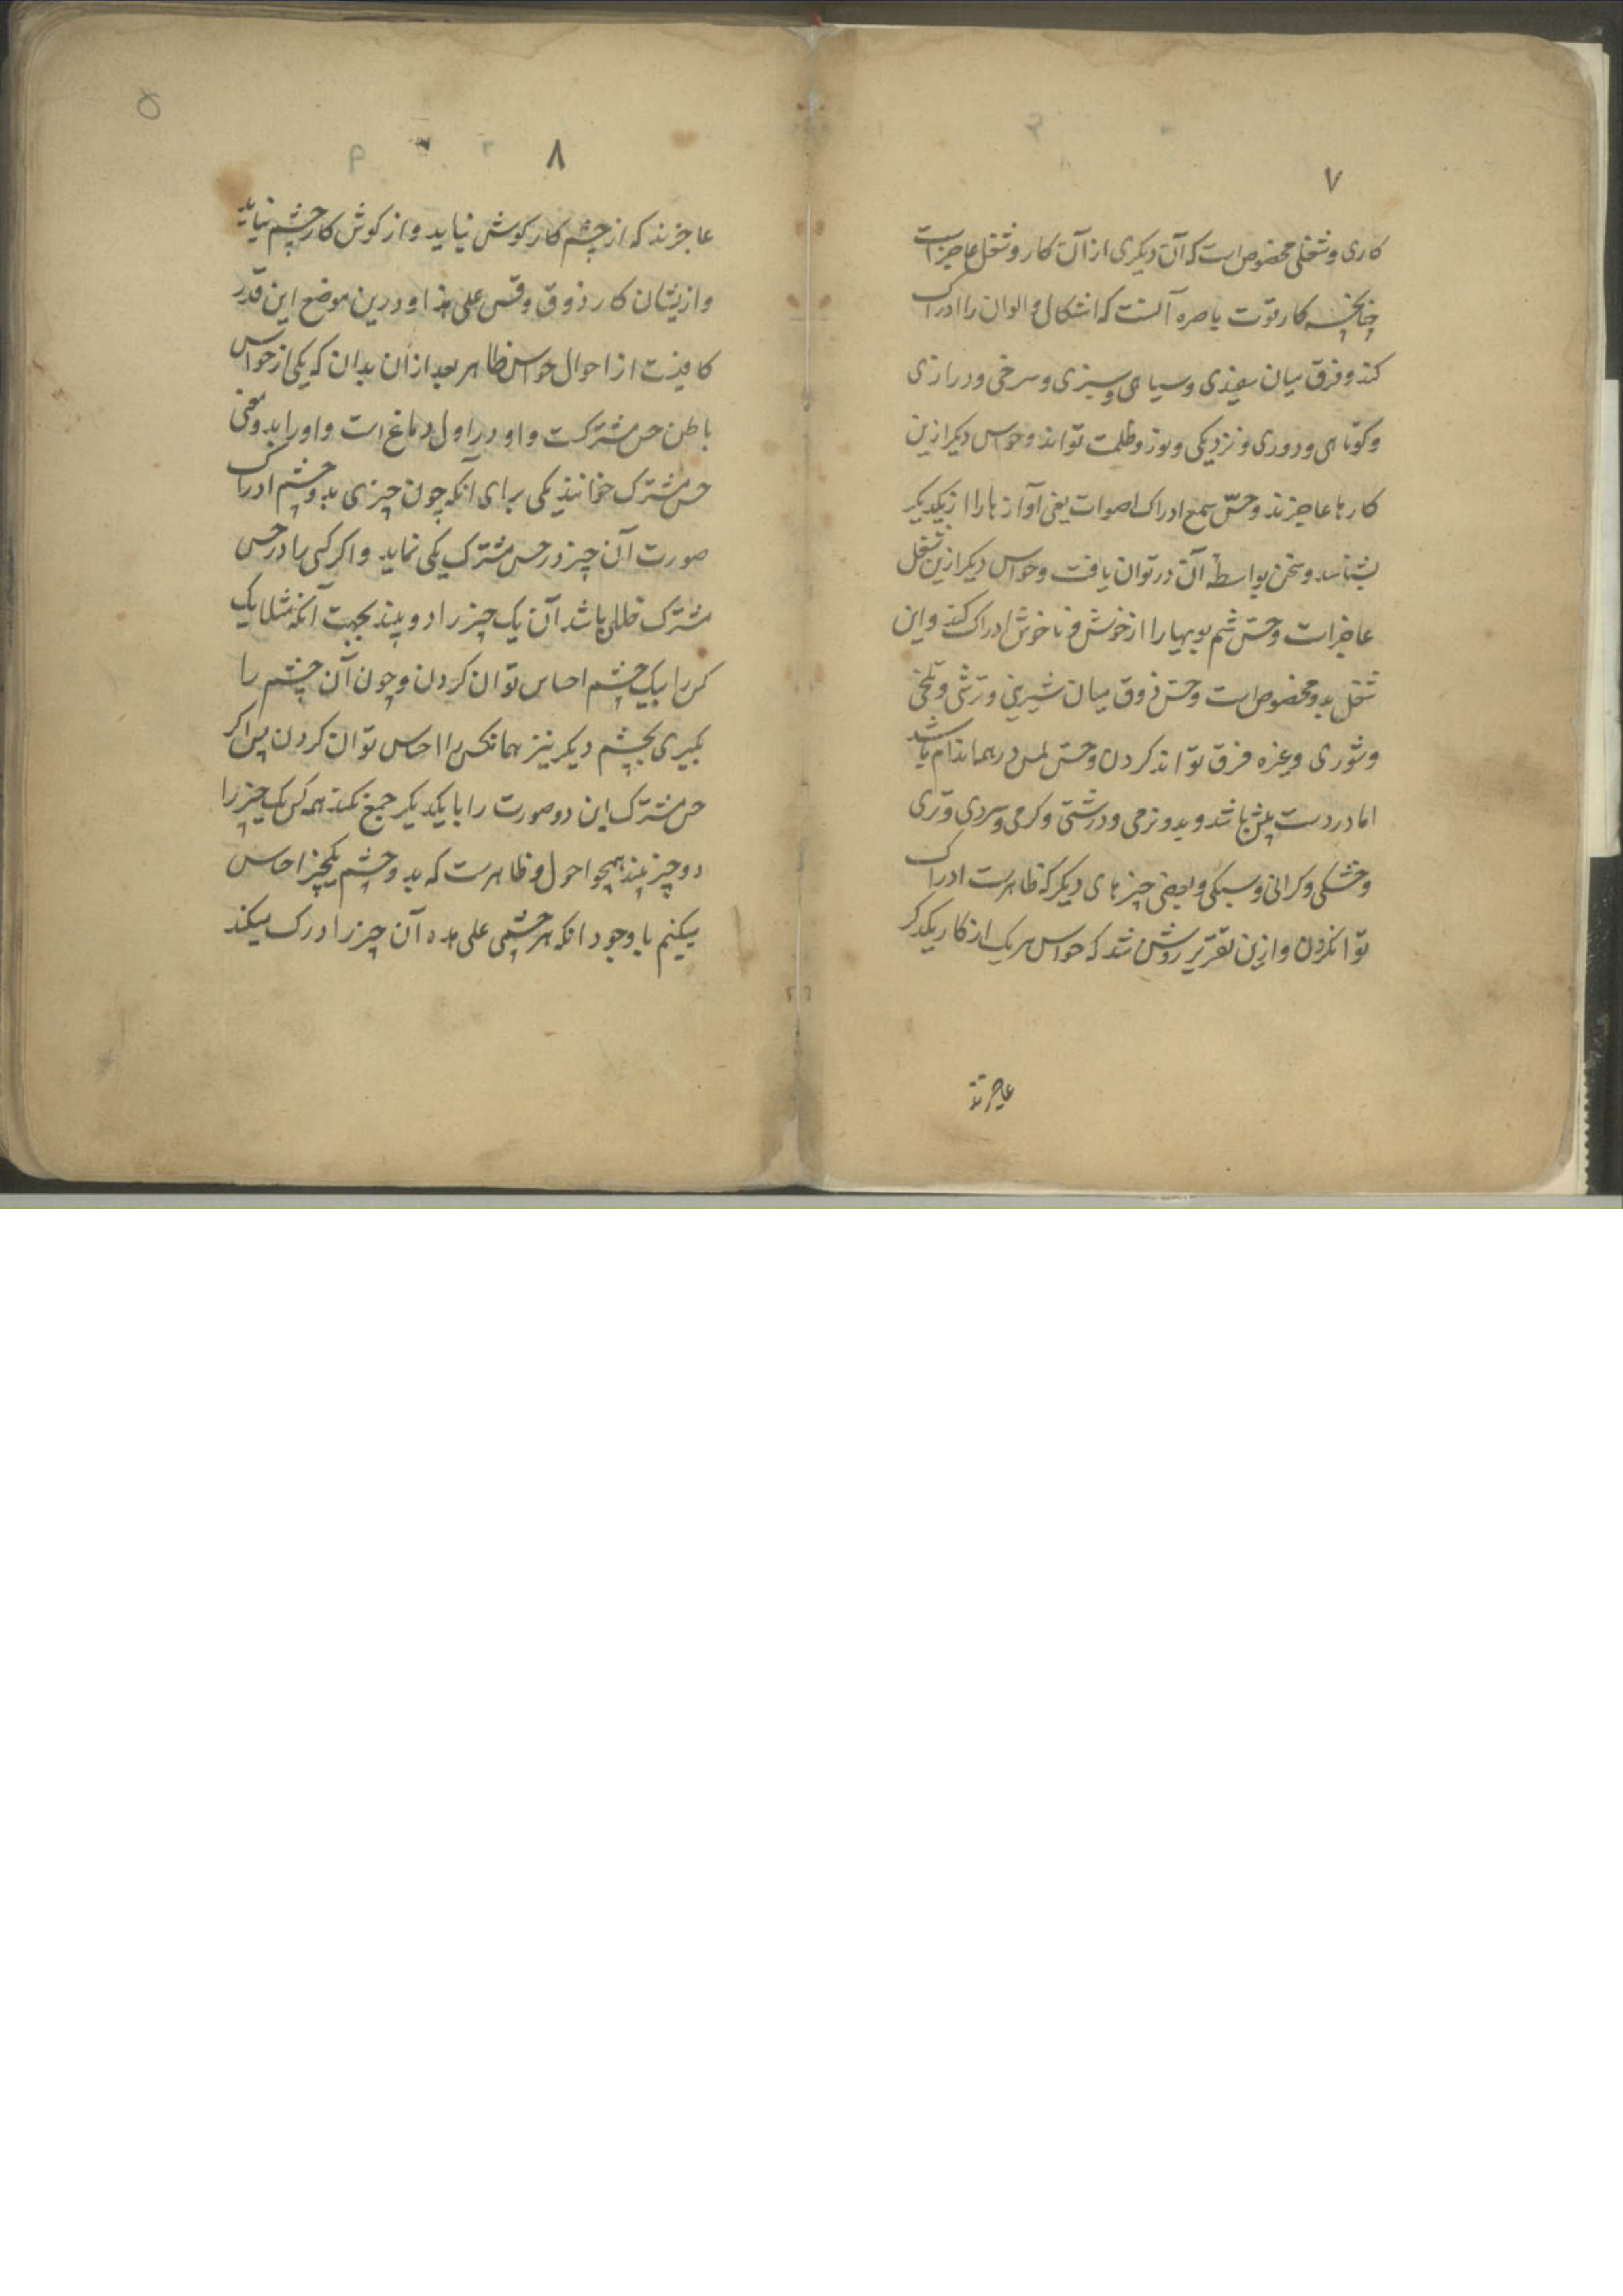 ٧
کاری و شغلی مخصوص است که آن دیکری از آن کار و شغل عاجز است
چنانچه کار قوت باصره آنست که اشکال و الوان را ادراک
کند و فرق میان سفیدی و سیاهی و سبزی و سرخی و درازی
و کوتاهی و دوری و نزدیکی و نور و ظلمت تواند و حواس دیکر ازین
کارها عاجزند و حسّ سمع ادراک اصوات یعنی آوازها را از یکدیکر
بشناسد و سخن بواسطهٔ آن در توان یافت و حواس دیکر ازین شغل
عاجز است و حسّ شم بویها را از خوش و ناخوش ادراک کند و این
شغل بدو مخصوص است و حس ذوق میان شیرینی و ترشی و تلخی
و شوری و غیره فرق تواند کردن و حسّ لمس در همه اندام باشد
اما در دست بیش باشد و بدو نرمی و درشتی و کرمی و سردی و تری
و خشکی و کرانی و سبکی و بعضی چیزهای دیکر که ظاهرست ادراک
توان کردن و ازین تقریر روشن شد که حواس هر یک از کار یکدکر
عاجزند
۵
٨
عاجزند که از چشم کار کوش نیاید و از کوش کار چشم نیاید
و ازیشان کار ذوق و قس علی هذا و درین موضع این قدر
کافیست از احوال حواس ظاهر بعد از آن بدان که یکی از حواس
باطن حس مشترکست و او در اول دماغ است و او را بدو معنی
حس مشترک خوانند یکی برای آنکه چون چیزی بدو چشم ادراک
صورت آن چیز در حس مشترک یکی نماید و اکر کسی را در حس
مشترک خللی باشد آن یک چیز را دو بیند بجهت آنکه مثلا یک
کس را بیک چشم احساس توان کردن و چون آن چشم را
بکیری بچشم دیکر نیز همانکس را احساس توان کردن پس اکر
حس مشترک این دو صورت را با یکدیکر جمع نکند همه کس یک چیز را
دو چیز بیند همچو احول و ظاهرست که بدو چشم یکچیز احساس
میکنیم با وجود انکه هر چشمی علی حده آن چیز را درک میکند